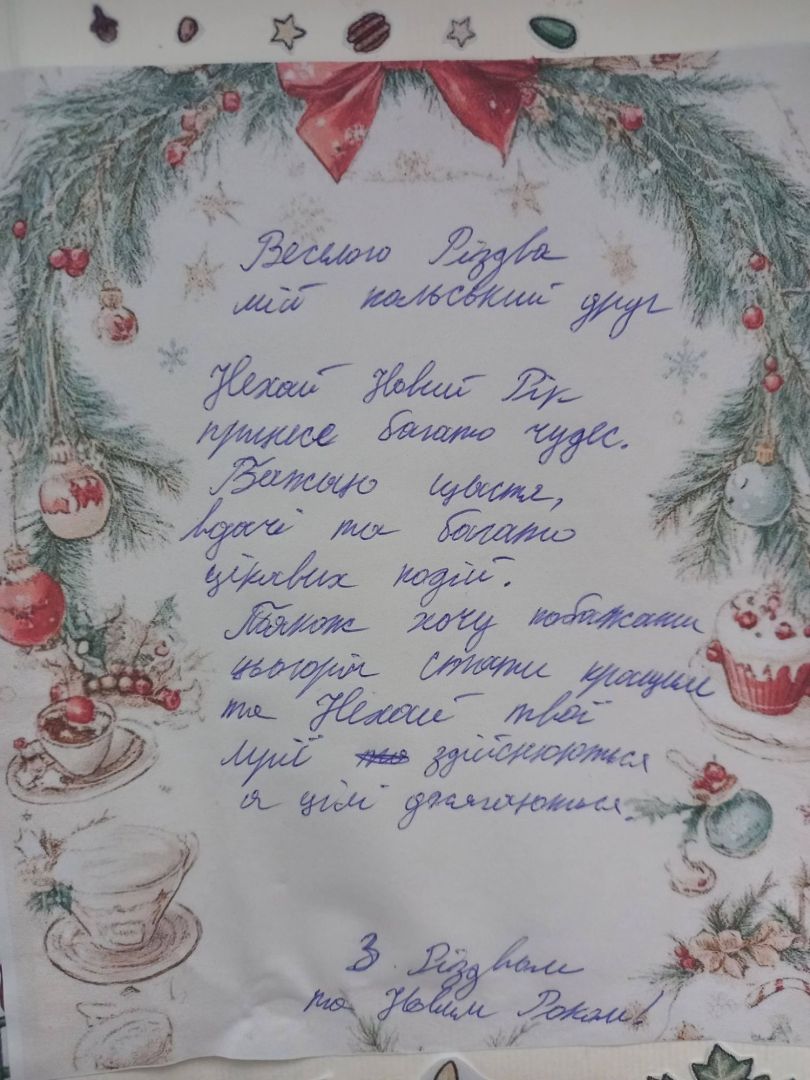 Веселого Різдва
мій польський друг
Нехай Новий Рік
принесе багато чудес.
Бажаю щастя,
вдачі та багато
цікавих подій.
Також хочу побажати
цьогоріч стати кращим
та Нехай твої
мрії здійснюються
а цілі досягаються.
З Різдвом
та Новим Роком!